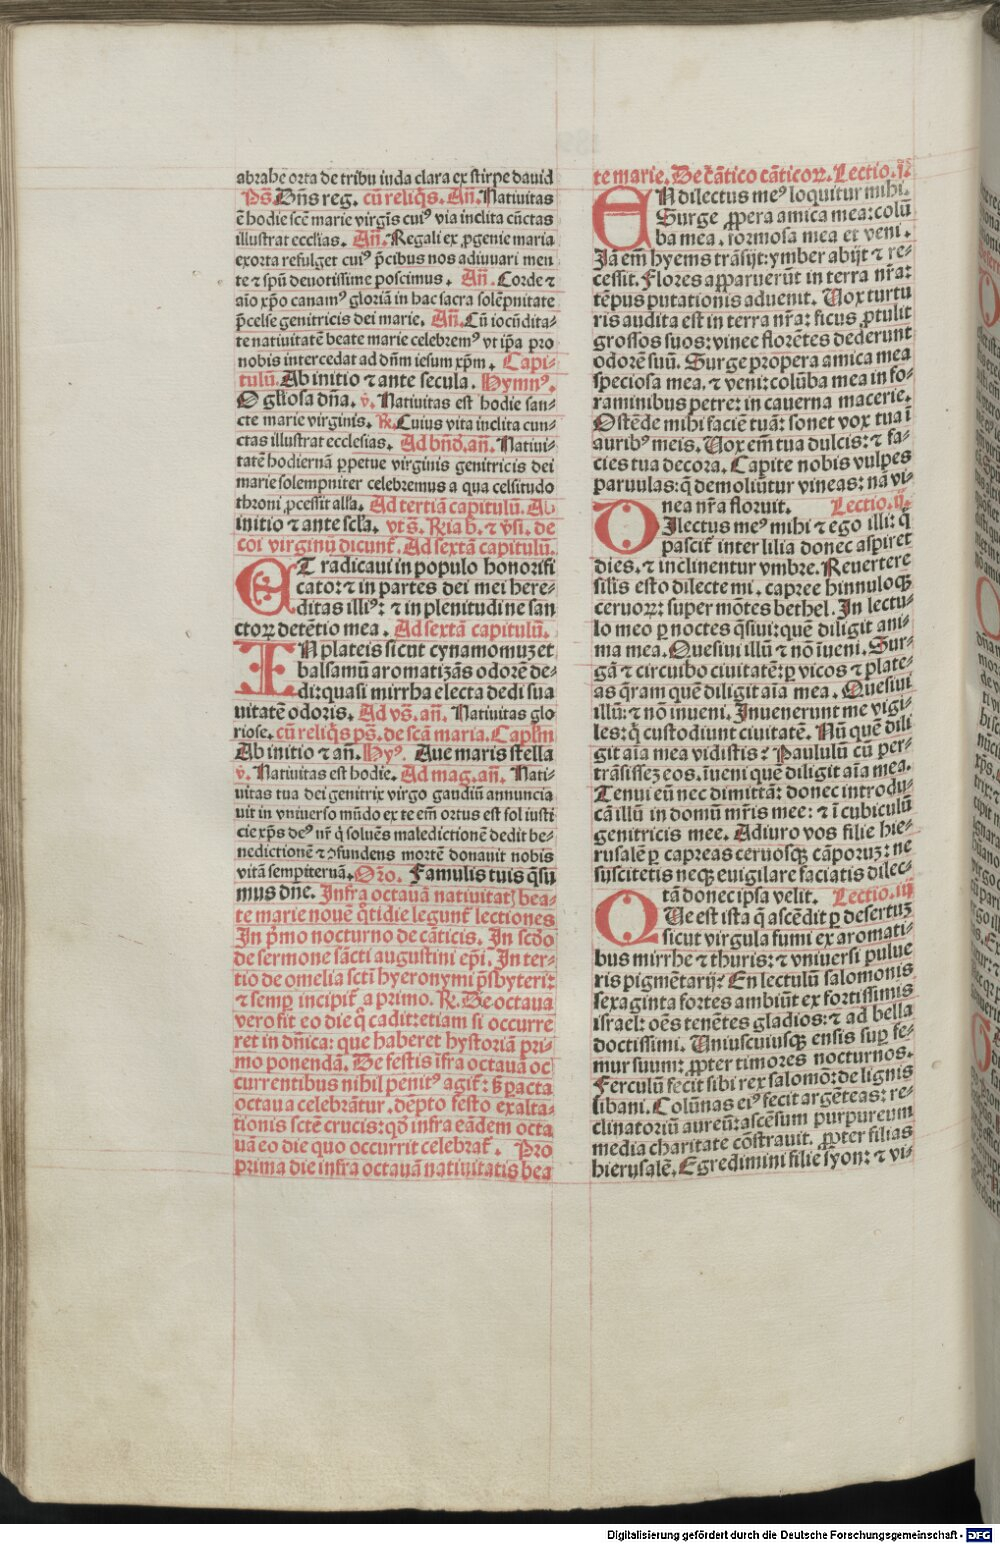 abrahe orta de tribu iuda clara ex stirpe dauid
Ps̄. Dn̄s reg. cū reliq̄s. An̄. Natiuitas
ē hodie scē marie virgīs cui⁹ via inclita cūctas
illustrat eccl̄ias. An̄. Regali ex ꝓgenie maria
exorta refulget cui⁹ p̄cibus nos adiuuari men
te ⁊ spū deuotissime poscimus. An̄. Corde ⁊
aīo xp̄o canam⁹ gloriā in hac sacra solēpnitate
p̄celse genitricis dei marie. An̄. Cū iocūdita-
te natiuitatē beate marie celebrem⁹ vt ip̄a pro
nobis intercedat ad dn̄m iesum xp̄m. Capi-
tulū. Ab initio ⁊ ante secula. Hymn⁹.
O gl̄iosa dn̄a. v̄. Natiuitas est hodie san-
cte marie virginis. R̄. Cuius vita inclita cun-
ctas illustrat ecclesias. Ad bn̄d̄. an̄. Natiui-
tatē hodiernā ꝑpetue virginis genitricis dei
marie solempniter celebremus a qua celsitudo
throni ꝓcessit all̄a. Ad tertiā capitulū. Ab
initio ⁊ ante scl̄a. vt s̄. R̄ia b. ⁊ v̄si. de
cōi virginū dicunt̄. Ad sextā capitulū.
ET radicaui in populo honorifi
cato: ⁊ in partes dei mei here-
ditas illi⁹: ⁊ in plenitudine san
ctoꝝ detētio mea. Ad sextā capitulū.
IN plateis sicut cynamomuꝫ et
balsamū aromatizās odorē de-
di: quasi mirrha electa dedi sua
uitatē odoris. Ad vs̄. an̄. Natiuitas glo
riose. cū reliq̄s ps̄. de scā maria. Capl̄m
Ab initio ⁊ an̄. Hy⁹. Aue maris stella
v̄. Natiuitas est hodie. Ad mag. an̄. Nati-
uitas tua dei genitrix virgo gaudiū annuncia
uit in vniuerso mūdo ex te em̄ ortus est sol iusti
cie xp̄s de⁹ nr̄ q̄ soluēs maledictionē dedit be-
nedictionē ⁊ ↄfundens mortē donauit nobis
vitā sempiternā. Or̄o. Famulis tuis q̄su
mus dn̄e. Infra octauā natiuitatꝭ bea-
te marie nouē q̄tidie legunt̄ lectiones
In p̄mo nocturno de cāticis. In scd̄o
de sermone sācti augustini ep̄i. In ter-
tio de omelia scti hyeronymi p̄sbyteri:
⁊ semꝑ incipit̄ a primo. R̄. De octaua
vero fit eo die q̄ cadit: etiam si occurre
ret in dn̄ica: que haberet hystoriā pri-
mo ponendā. De festis īfra octauā oc
currentibus nihil penit⁹ agit̄: s̄ ꝑacta
octaua celebrātur. dēpto festo exalta-
tionis sctē crucis: qd̄ infra eādem octa
uā eo die quo occurrit celebrat̄. Pro
prima die infra octauā natiuitatis bea
te marie. De cātico cāticoꝝ. Lectio. i.
EN dilectus me⁹ loquitur mihi.
Surge ꝓpera amica mea: colū
ba mea. formosa mea et veni.
Jā em̄ hyems trāsijt: ymber abijt ⁊ re-
cessit. Flores apparuerūt in terra nr̄a:
tēpus putationis aduenit. Vox turtu
ris audita est in terra nr̄a: ficus ꝓtulit
grossos suos: vinee florētes dederunt
odorē suū. Surge propera amica mea
speciosa mea. ⁊ veni: colūba mea in fo-
raminibus petre: in cauerna macerie.
Ostēde mihi faciē tuā: sonet vox tua ī
aurib⁹ meis. Vox em̄ tua dulcis: ⁊ fa-
cies tua decora. Capite nobis vulpes
paruulas: q̄ demoliūtur vineas: nā vi-
nea nr̄a floruit. Lectio. ij.
DIlectus me⁹ mihi ⁊ ego illi: q̄
pascit̄ inter lilia donec aspiret
dies. ⁊ inclinentur vmbre. Reuertere
silis esto dilecte mi. capree hinnuloꝙ
ceruoꝝ: super mōtes bethel. In lectu-
lo meo ꝑ noctes q̄siui: quē diligit ani-
ma mea. Quesiui illū ⁊ nō īueni. Sur-
gā ⁊ circuibo ciuitatē: ꝑ vicos ⁊ plate-
as q̄ram quē diligit aīa mea. Quesiui
illū: ⁊ nō inueni. Inuenerunt me vigi-
les: q̄ custodiunt ciuitatē. Nū quē dili
git aīa mea vidistis? Paululū cū per-
trāsisseꝫ eos. īueni quē diligit aīa mea.
Tenui eū nec dimittā: donec introdu-
cā illū in domū mr̄is mee: ⁊ ī cubiculū
genitricis mee. Adiuro vos filie hie-
rusalē ꝑ capreas ceruosꝙ cāporuꝫ: ne
suscitetis neꝙ euigilare faciatis dilec-
tā donec ipsa velit. Lectio. iij
QUe est ista q̄ ascēdit ꝑ desertuꝫ
sicut virgula fumi ex aromati-
bus mirrhe ⁊ thuris: ⁊ vniuersi pulue
ris pigmētarij? En lectulū salomonis
sexaginta fortes ambiūt ex fortissimis
israel: oēs tenētes gladios: ⁊ ad bella
doctissimi. Vniuscuiusꝙ ensis suꝑ fe-
mur suum: ꝓpter timores nocturnos.
Ferculū fecit sibi rex salomō: de lignis
libani. Colūnas ei⁹ fecit argēteas: re-
clinatoriū aureū: ascēsum purpureum
media charitate cōstrauit. ꝓpter filias
hierusalē. Egredimini filie syon: ⁊ vi-
Digitalisierung gefördert durch die Deutsche Forschungsgemeinschaft - DFG